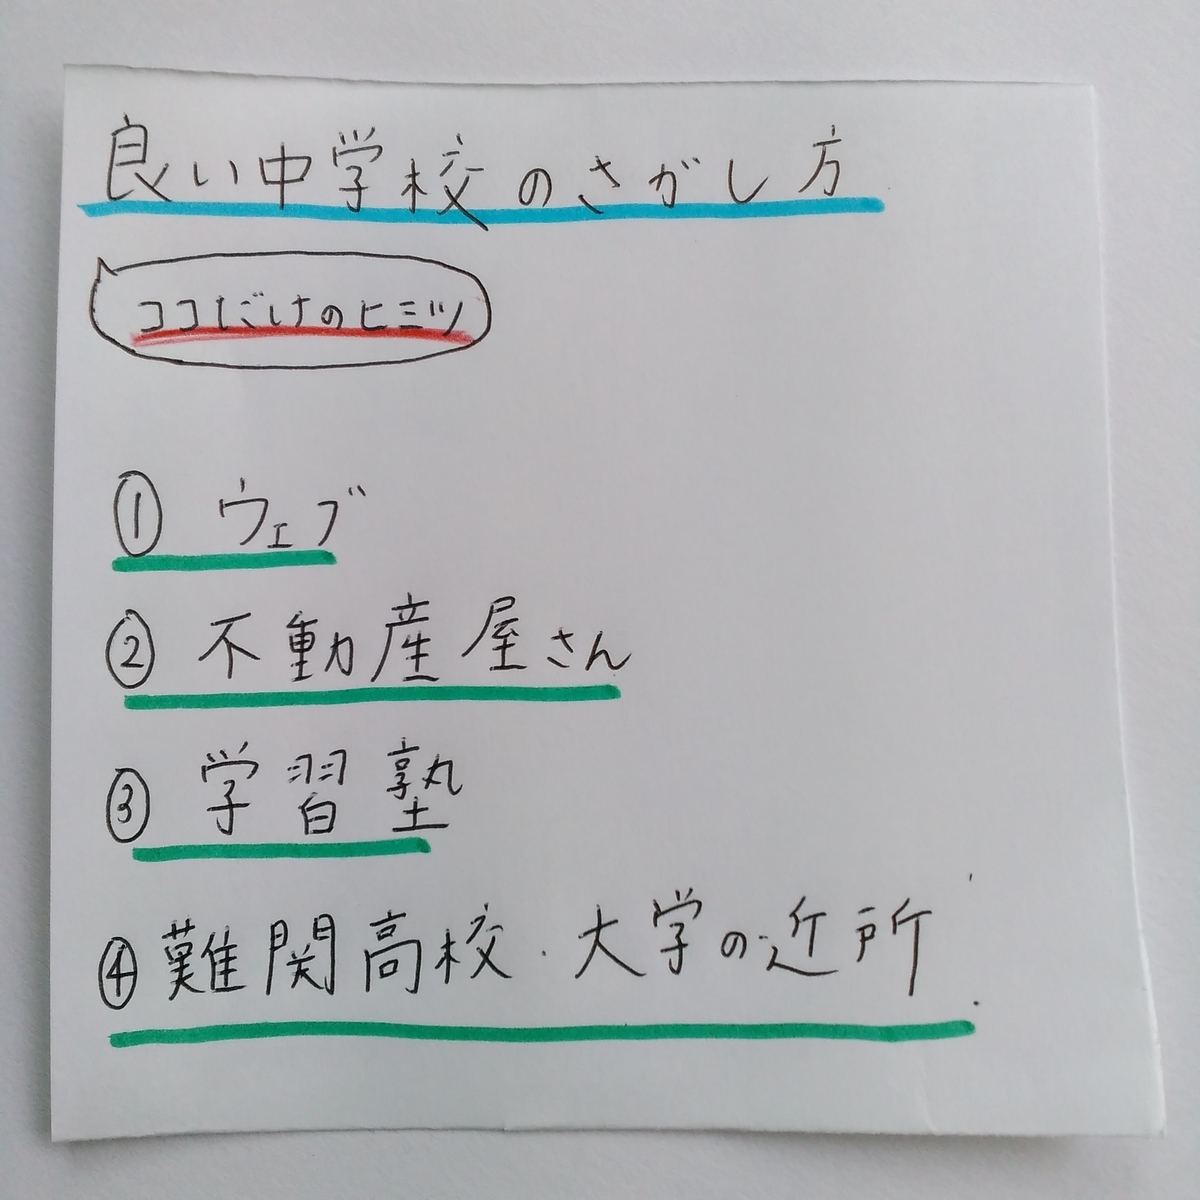 良い中学校のさがし方
ココだけのヒミツ
① ウェブ
② 不動産屋さん
③ 学習塾
④ 難関高校・大学の近所